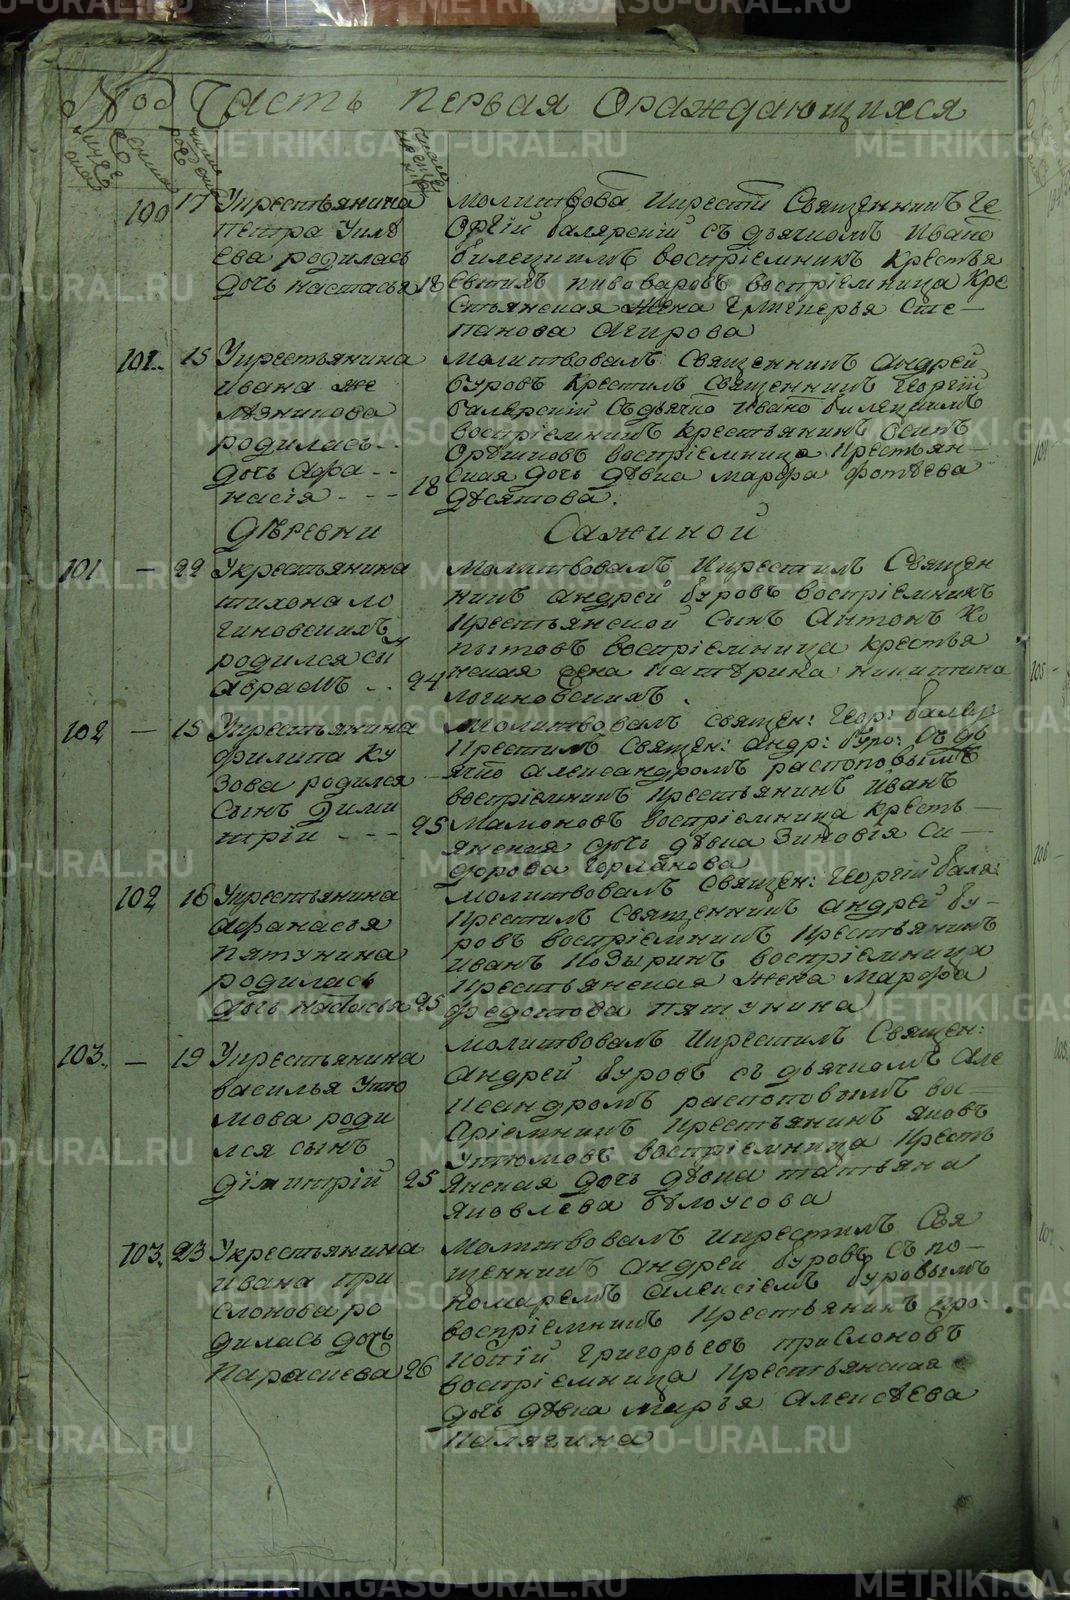 Год Часть первая ораждающихся
100 17 Укрестьянина
Петра
ева родилась
дочь настасья 18
молитвова Икрести Священникъ Ге
оргій Балярскій съ дьячкомъ Ивано
билецкимъ воспріемникъ крестья
пивоваровъ воспріемница Кре
стьянская жена Гликерья Сте-
панова Агирова
101.. 15 Укрестьянина
ивана же
лѣзникова
родилась..
дочь Афа--
насія---18
молитвовалъ Священникъ андрей
буровъ крестилъ Священникъ Георгій
балярскій Съдьячко Ивано билецкимъ
воспріемникъ крестьянинъ осипъ
Орѣшковъ воспріемница Крестьян-
ская дочь дѣвка марфа фотѣева
дѣсятова.
Дѣревни Сажиной
101 - 22 Укрестьянина
тихона ло
гиновскихъ
родился сы
Абрамъ .. 24
Молитвовалъ Икрестилъ Священ
никъ андрей буровъ воспріемникъ
Крестьянской сынъ Антонъ Ко
пытовъ воспріемница крестья
нская жена Катѣрина никитина
логиновскихъ.
102 - 15 Укрестьянина
филипа Ку
зова родился
Сынъ Дими
трій --- 25
молитвовалъ священ: Геор: баляр
Крестилъ Священ: андр: буро: Съ дь
ячко александромъ распоповымъ
воспріемникъ Крестьянинъ иванъ
Мамоновъ воспріемница кресть-
янская дочь дѣвка Зиновія си-
дорова
102 16 Укрестьянина
афанасья
пятунина
родилась
дочь настасья 25
молитвовалъ Священ: Георгій баля:
Крестилъ Священникъ андрей бу-
ровъ воспріемникъ Крестьянинъ
иванъ Козыринъ воспріемница
Крестьянская жена марфа
федотова пятунина
103. - 19 Укрестьянина
василья Утю
мова роди
лся сынъ
димитрій 25
молитвовалъ Икрестилъ Священ:
андрей буровъ съ дьячкомъ але
ксандромъ распоповымъ вос-
пріемникъ Крестьянинъ яковъ
Утюмовъ воспріемница Кресть
янская дочь дѣвка татьяна
яковлева бѣлоусова
103. 23 Укрестьянина
ивана при
слонова ро
дилась дочь
Параскева 26
Молитвовалъ икрестилъ Свя
щенникъ андрей буровъ съ по-
номаремъ алексіемъ буровымъ
воспріемникъ Крестьянинъ про
копій григорьевъ прислоновъ
воспріемница Крестьянская
дочь дѣвка марья алексѣева
Калягина
METRIKI.GASO-URAL.RU